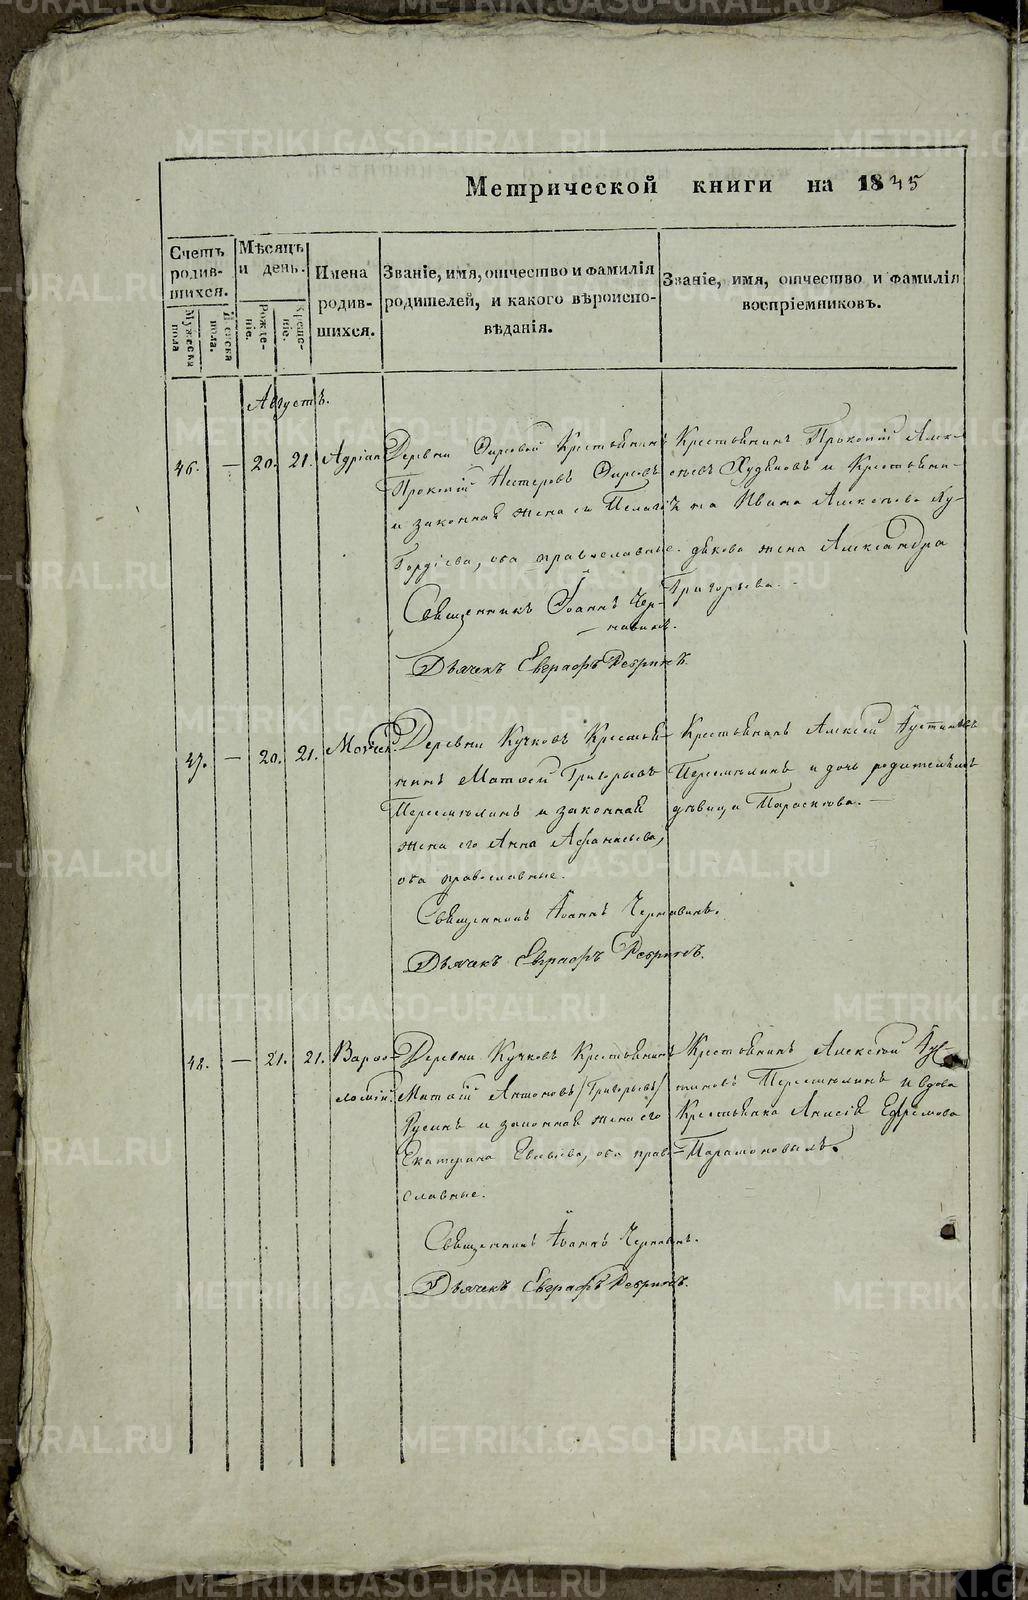 Метрической книги на 1845
Счетъ родившихся.
Мужеска пола
Женска пола.
Мѣсяцъ и день.
Рожденіе.
Крещеніе.
Имена родившихся.
Званіе, имя, отчество и фамилія родителей, и какого вѣроисповѣданія.
Званіе, имя, отчество и фамилія воспріемниковъ.
Августъ.
46. — 20. 21. Адріан
Деревни Крестьянинъ
Прокопій Нестеровъ
и законная жена его Пелагія
Гордѣева, оба православные.
Священникъ Іоаннъ Чер-
навинъ.
Дьячекъ Евграфъ Ребринъ.
Крестьянинъ Прокопій Алек-
сѣевъ Худяковъ и Крестьяни-
на Ивана Алексѣева Ху-
дякова жена Александра
Григорьева.
47. — 20. 21. Моѵсей.
Деревни Кучковъ Крестья-
нинъ Матвей Григорьевъ
Пересмѣлинъ и законная
жена его Анна Афанасьева,
оба православные.
Священникъ Іоаннъ Чернавинъ.
Дьячекъ Евграфъ Ребринъ.
Крестьянинъ Алексѣй Іустиновъ
Пересмѣлинъ и дочь родителямъ
дѣвица Параскова. —
48. — 21. 21. Варфо-
ломій.
Деревни Кучковъ Крестьянинъ
Антоновъ /Григорьевъ/
Русинъ и законная жена его
Екатерина оба право-
славные.
Священникъ Іоаннъ Чернавинъ.
Дьячекъ Евграфъ Ребринъ.
Крестьянинъ Алексѣй Іус-
тиновъ Пересмѣлинъ и вдова
Крестьянка Анисія Ефремова
Парамоновыхъ.
METRIKI.GASO-URAL.RU